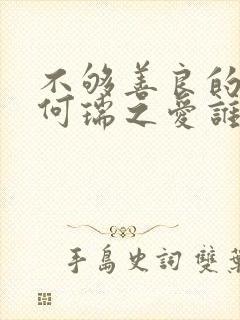 不够善良的
何瑞之愛誰
手島史詞 雙葉